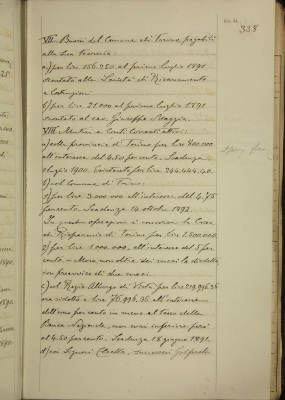 338
VII. Buoni del Comune di Torino pagabili
alla sua tesoreria:
a) per lire 156.250 al primo luglio 1891
scontato alla Società di Risanamento
e Costruzioni
b) per lire 21.000 al primo luglio 1891
scontato al cav. Giuseppe
VIII. Mutui e Conti Correnti attivi:
a) colla provincia di Torino per lire 800.000
all'interesse del 4.50 per cento. Scadenza
luglio 1900. per lire 244.444.40.
b) col Comune di Torino:
1) per lire 3.000.000 all'interesse del 4.75
per cento. Scadenza 14 ottobre 1893.
In questa operazione è concorsa la Cassa
di Risparmio di Torino per lire 1.500.000
2) per lire 1.000.000, all'interesse del 5 per
cento. Mora non oltre sei mesi la disdetta
con preavviso di due mesi.
c) col Regio Albergo di Virtù per lire 219.996.35
ora ridotto a lire 76.996.35 all'interesse
dell'uno per cento in meno al tasso della
Banca Nazionale, non mai inferiore però
al 4.50 per cento. Scadenza 18 giugno 1891.
d) coi Signori successori